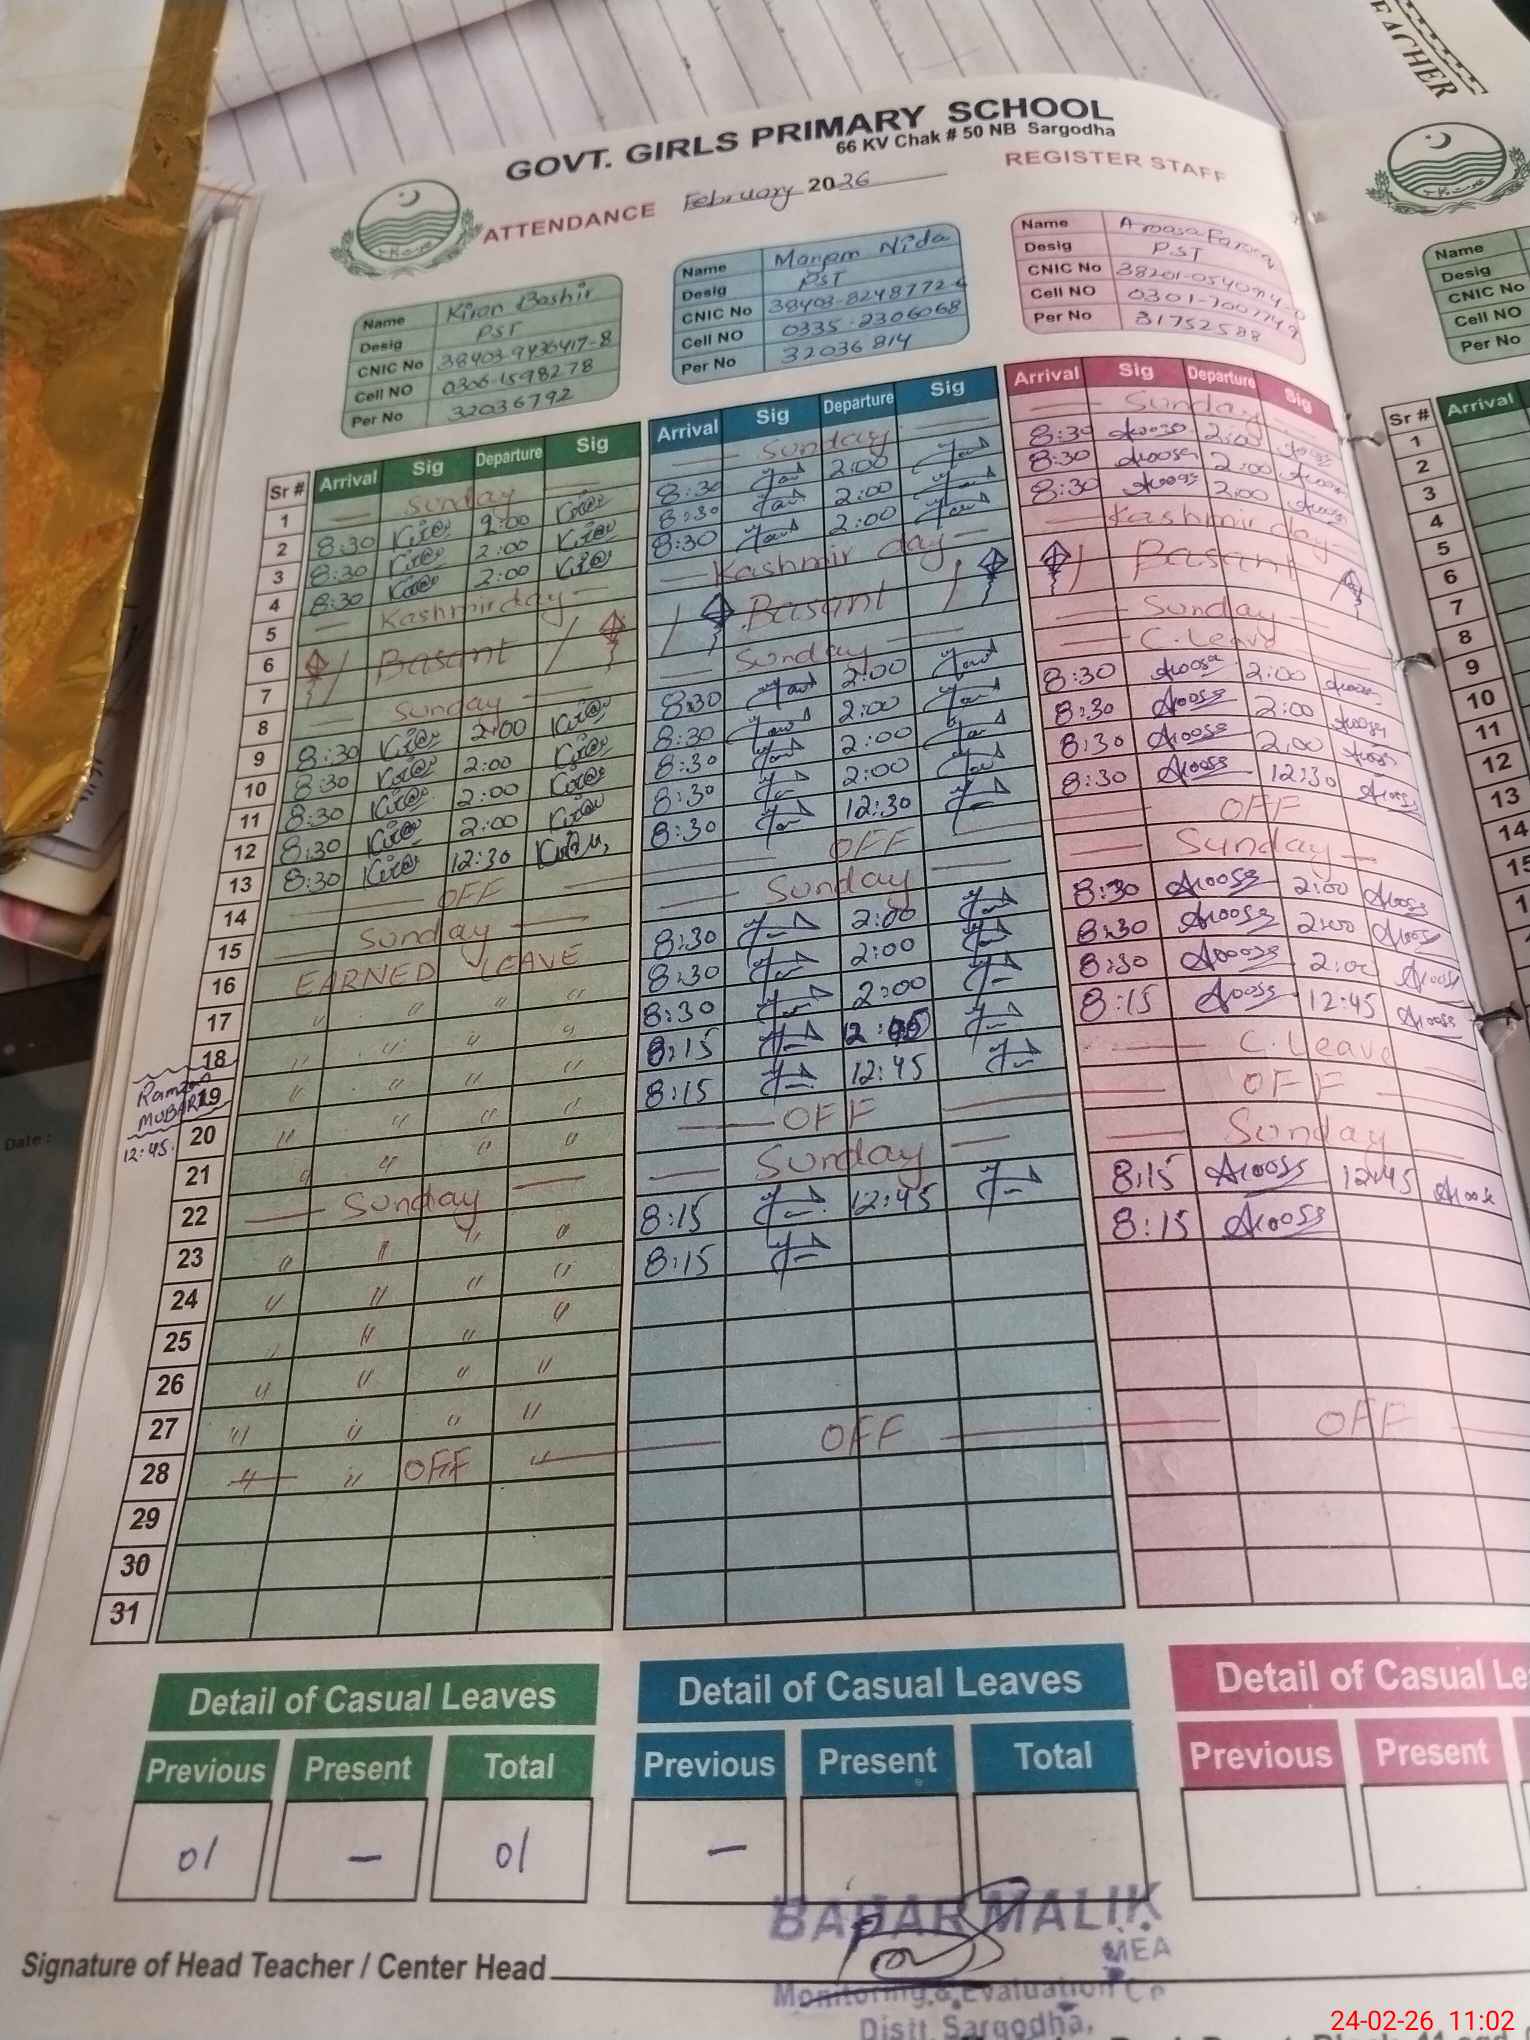 EACHER
GOVT. GIRLS PRIMARY SCHOOL
66 KV Chak # 50 NB Sargodha
ATTENDANCE February 2026 REGISTER STAFF
Name Kiran Bashir
Desig PST
CNIC No 38403-9436417-8
Cell NO 0306-1598278
Per No 32036792
Name Maryam Nida
Desig PST
CNIC No 38403-8248772-6
Cell NO 0335-2306068
Per No 32036814
Name Aroosa Farooq
Desig PST
CNIC No
Cell NO
Per No 31752588
Name
Desig
CNIC No
Cell NO
Per No
Sr # Arrival Sig Departure Sig Arrival Sig Departure Sig Arrival Sig Departure Sig Sr # Arrival
1 Sunday Sunday Sunday 1
2 8:30 2:00 8:30 2:00 8:30 Aroosa 2:00 Aroosa 2
3 8:30 2:00 8:30 2:00 8:30 Aroosa 2:00 Aroosa 3
4 8:30 2:00 8:30 2:00 8:30 Aroosa 2:00 Aroosa 4
5 Kashmir day Kashmir day Kashmir day 5
6 Basant Basant Basant 6
7 7
8 Sunday Sunday Sunday 8
9 8:30 2:00 8:30 2:00 C.Leave 9
10 8:30 2:00 8:30 2:00 8:30 Aroosa 2:00 Aroosa 10
11 8:30 2:00 8:30 2:00 8:30 Aroosa 2:00 Aroosa 11
12 8:30 2:00 8:30 2:00 8:30 Aroosa 2:00 Aroosa 12
13 8:30 12:30 8:30 12:30 8:30 Aroosa 12:30 Aroosa 13
14 OFF OFF OFF 14
15 Sunday Sunday Sunday 15
16 EARNED LEAVE 8:30 2:00 8:30 Aroosa 2:00 Aroosa
17 " " " 8:30 2:00 8:30 Aroosa 2:00 Aroosa
18 " " " " 8:30 2:00 8:30 Aroosa 2:00 Aroosa
Ramzan
MUBARAK
12:45
19 " " " " 8:15 12:45 8:15 Aroosa 12:45 Aroosa
20 " " " " 8:15 12:45 C.Leave
21 " " " " OFF OFF
22 Sunday Sunday Sunday
23 " " " " 8:15 12:45 8:15 Aroosa 12:45 Aroosa
24 " " " " 8:15 8:15 Aroosa
25 " " " "
26 " " " "
27 " " " "
28 " " OFF " OFF OFF
29
30
31
Detail of Casual Leaves Detail of Casual Leaves Detail of Casual Le
Previous Present Total Previous Present Total Previous Present
01 – 01 –
BABAR MALIK
MEA
Signature of Head Teacher / Center Head
Monitoring & Evaluation Ce
Distt. Sargodha.
24-02-26 11:02
Date :